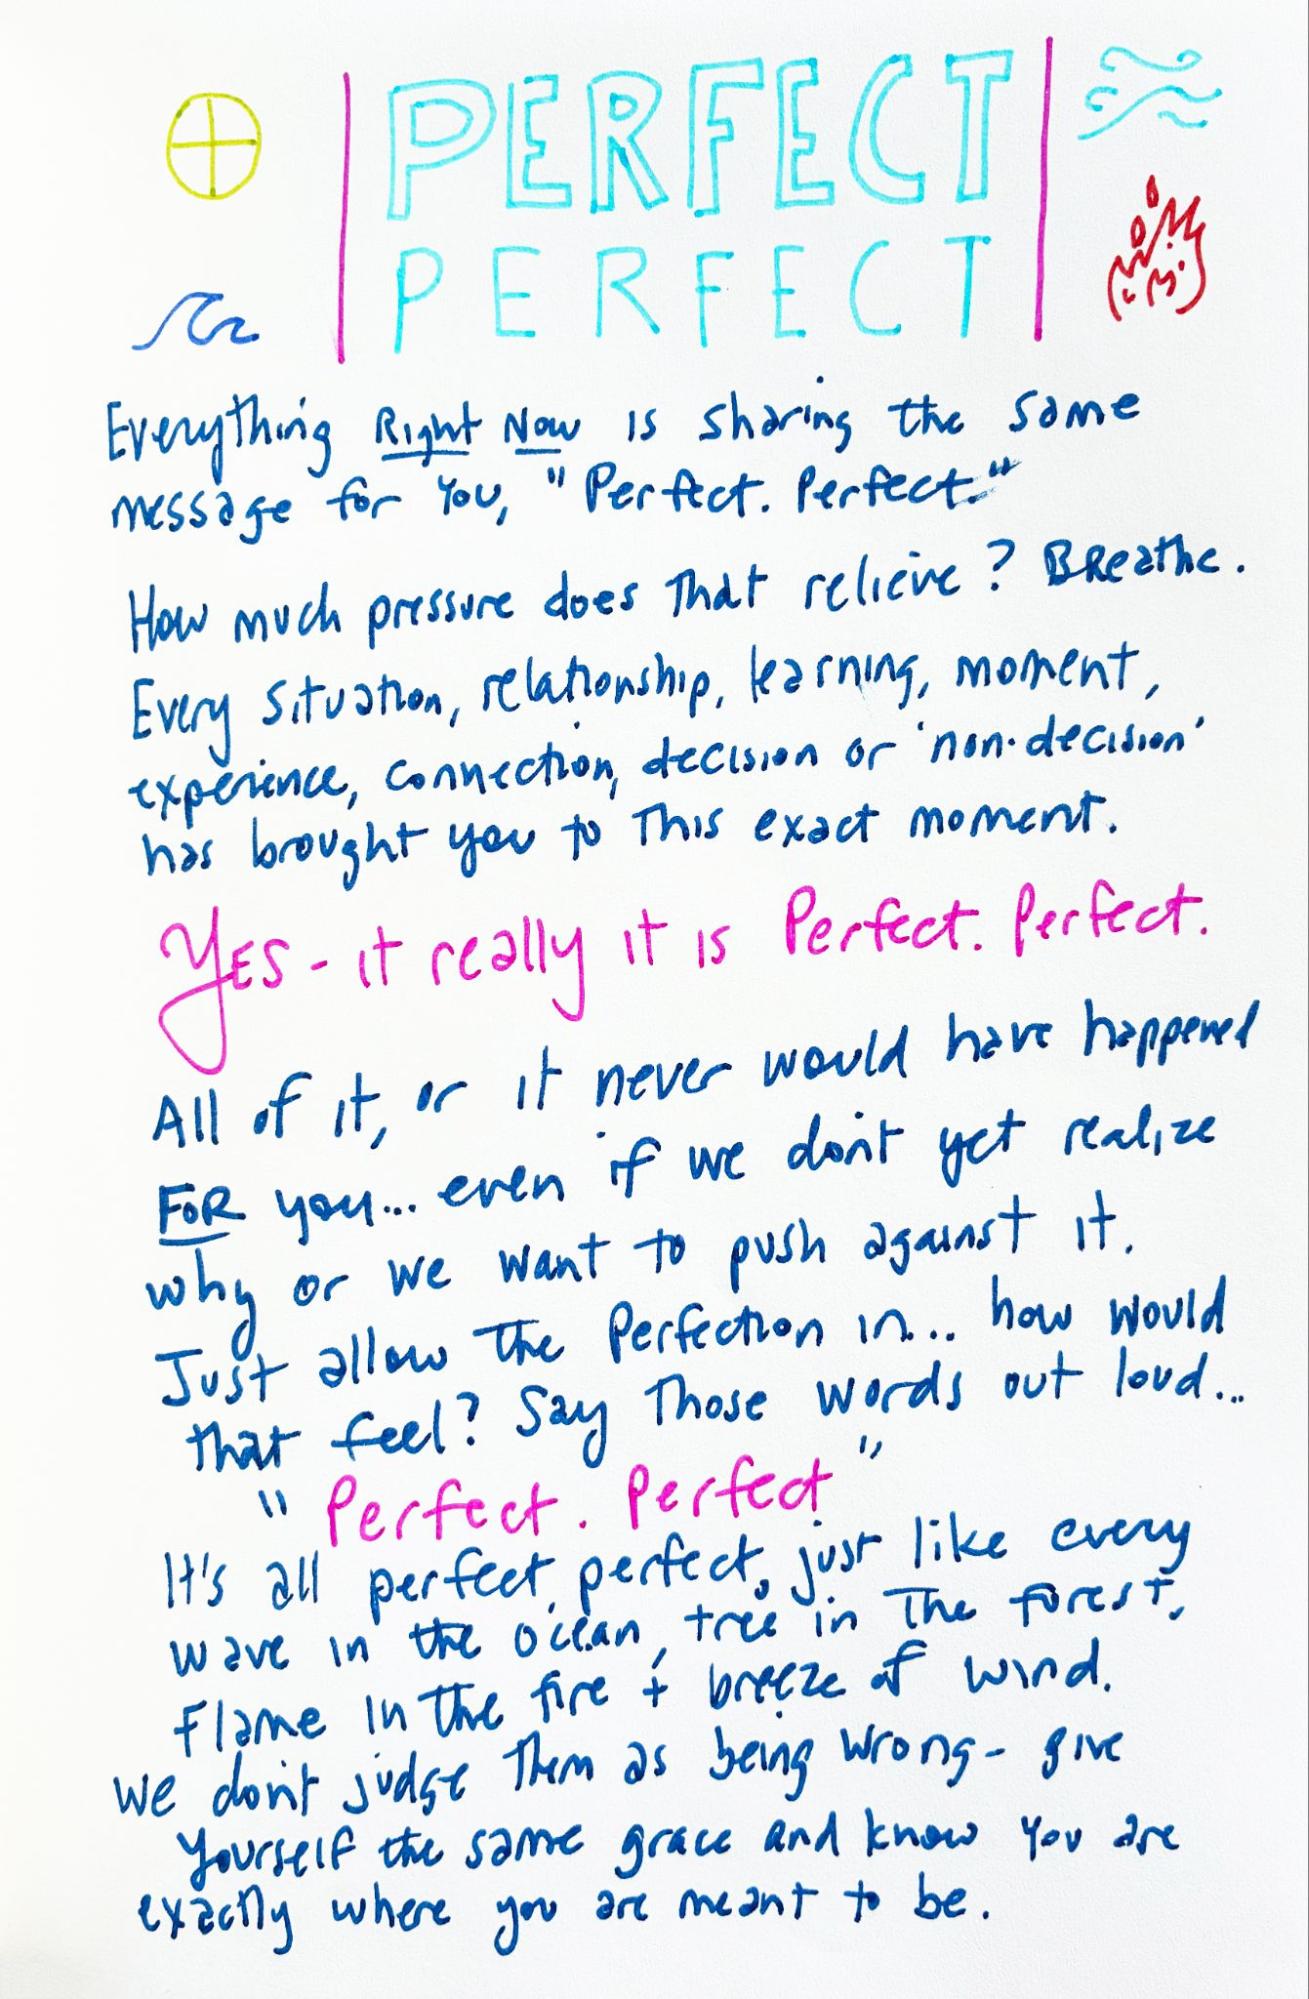 PERFECT
PERFECT
Everything Right Now is sharing the same
message for You, "Perfect. Perfect."
How much pressure does That relieve? BReathe.
Every situation, relationship, learning, moment,
experience, connection, decision or 'non-decision'
has brought you to This exact moment.
YES - it really it is Perfect. Perfect.
All of it, or it never would have happened
FOR you... even if we don't yet realize
why or we want to push against it.
Just allow The Perfection in... how would
that feel? Say Those words out loud...
"Perfect. Perfect"
It's all perfect, perfect, just like every
wave in the ocean, tree in The forest,
flame in The fire + breeze of wind.
We don't judge Them as being wrong - give
yourself the same grace and know You are
exactly where you are meant to be.